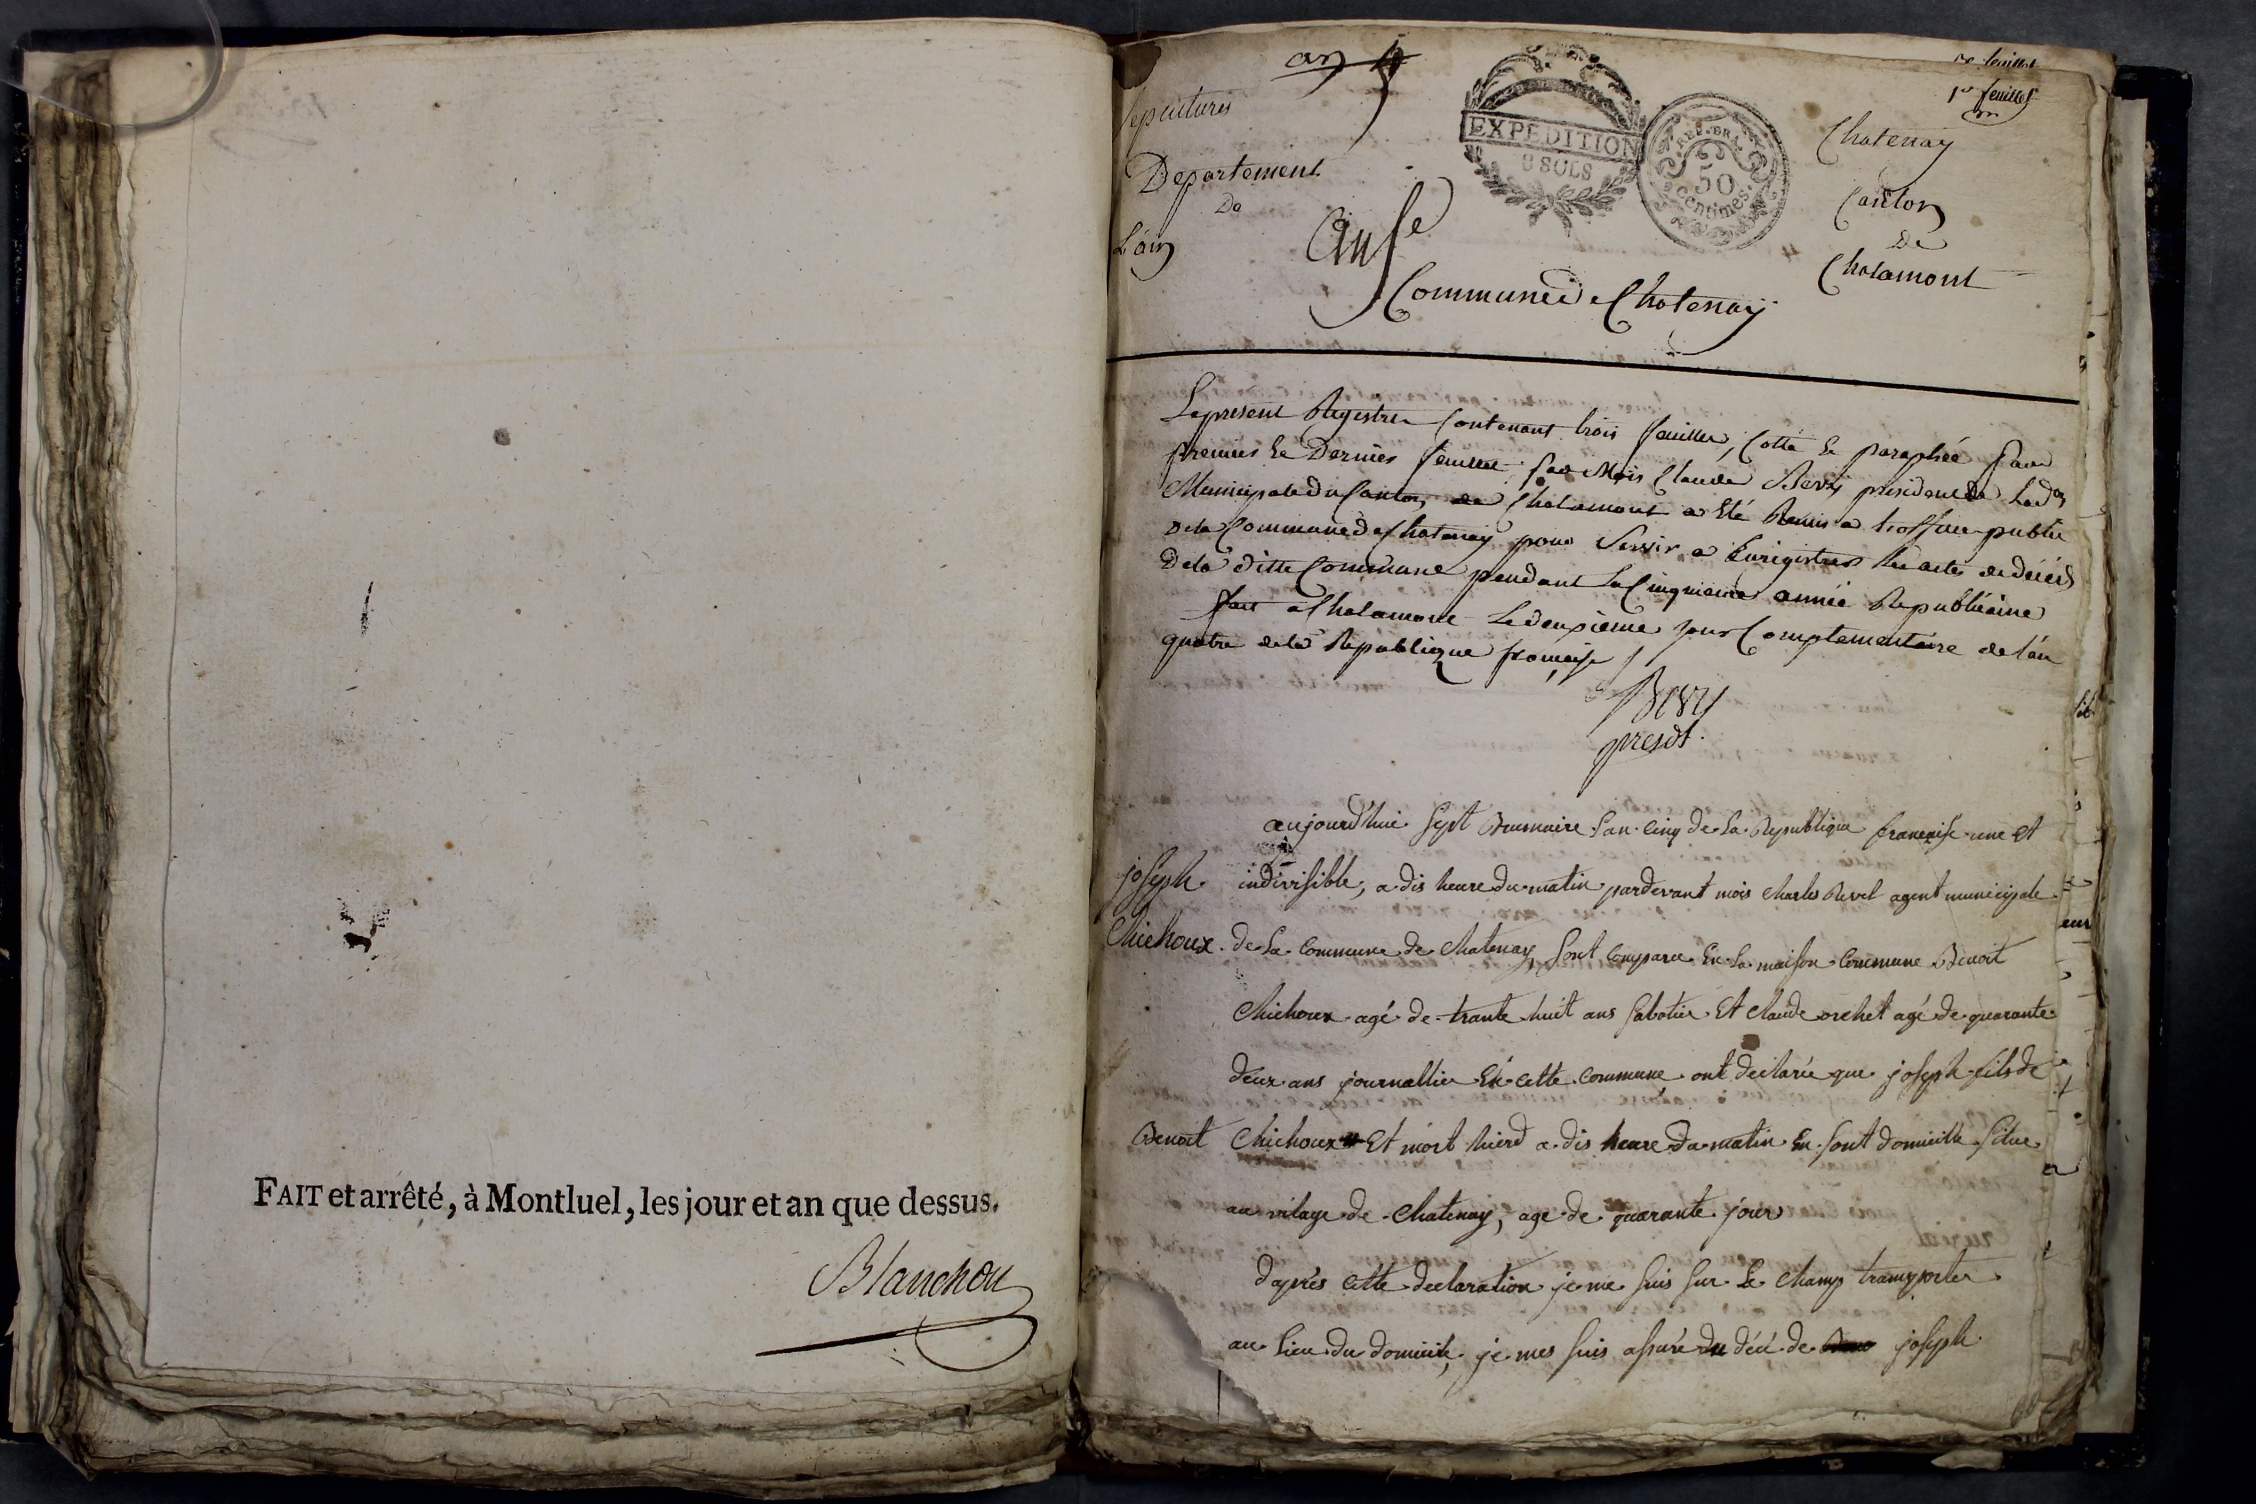 FAIT et arrêté, à Montluel, les jour et an que dessus.
Blanchon
an
1er feuillet
Sepultures
EXPEDITION
8 SOLS
REP. FRA.
50
Centimes
Chatenay
Departement
De
L'áin
Canton
De
Chalamont
an 5e
Commune de Chatenay
Le présent Registre Contenant trois feuilles, Cotté et paraphée par
premier et Dernier feuillet par Mois Claude Bevy président De Lad.on
Municipale du Canton de Chalamont a Eté Remis a L'officier public
De la Commune de Chatenay pour Servir a Enrigistrer les actes de décés
De la ditte Commune pendant La Cinquieme année Republicaine
fait a Chalamont Le deuxieme jour Complementaire de l'an
quatre de la Republique française
Bevy
presdt.
aujourd'hui Sept Brumaire l'an cinq de La Republique francaise une et
joseph indivisible, a dis heure du matin pardevant mois Charles Revel agent municipale
Chichoux de La Commune de Chatenay, sont comparu En La maison Commune Benoit
Chichoux agé de trante huit ans Sabotier Et Claude orchet agé de quarante
deux ans journallier En cette commune ont declarée que joseph fils de
Benoit Chichoux Et mort hierd a dis heure du matin En sont domicille situe
au vilage de Chatenay, age de quarante jour
d'après cette declaration je me suis sur Le champ transporter
au Lieu du domicile, je mes suis assuré du décé de joseph